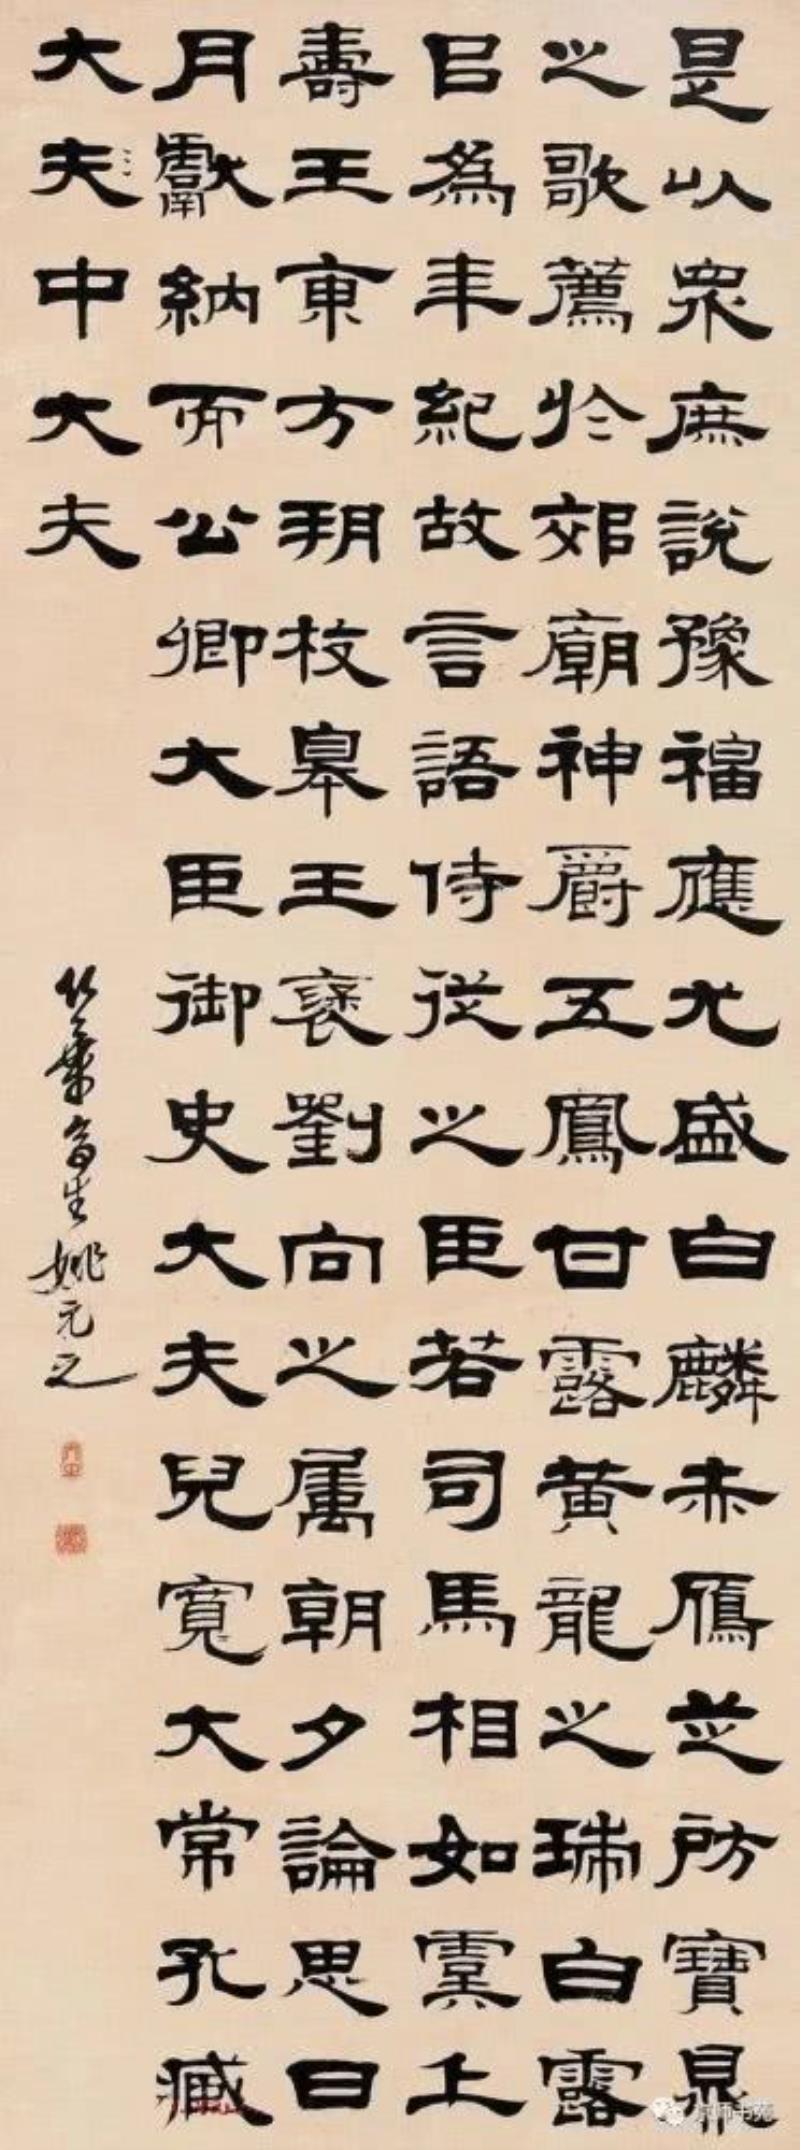 是以眾庶說豫福應尤盛白麟赤鴈芝防寶鼎
之歌薦於郊廟神爵五鳳甘露黃龍之瑞白露
㠯為年紀故言語侍從之臣若司馬相如虞上
壽王東方朔枚皋王褒劉向之属朝夕論思日
月獻納而公卿大臣御史大夫兒寬大常孔臧
大夫〻中大夫
竹葉亭生姚元之